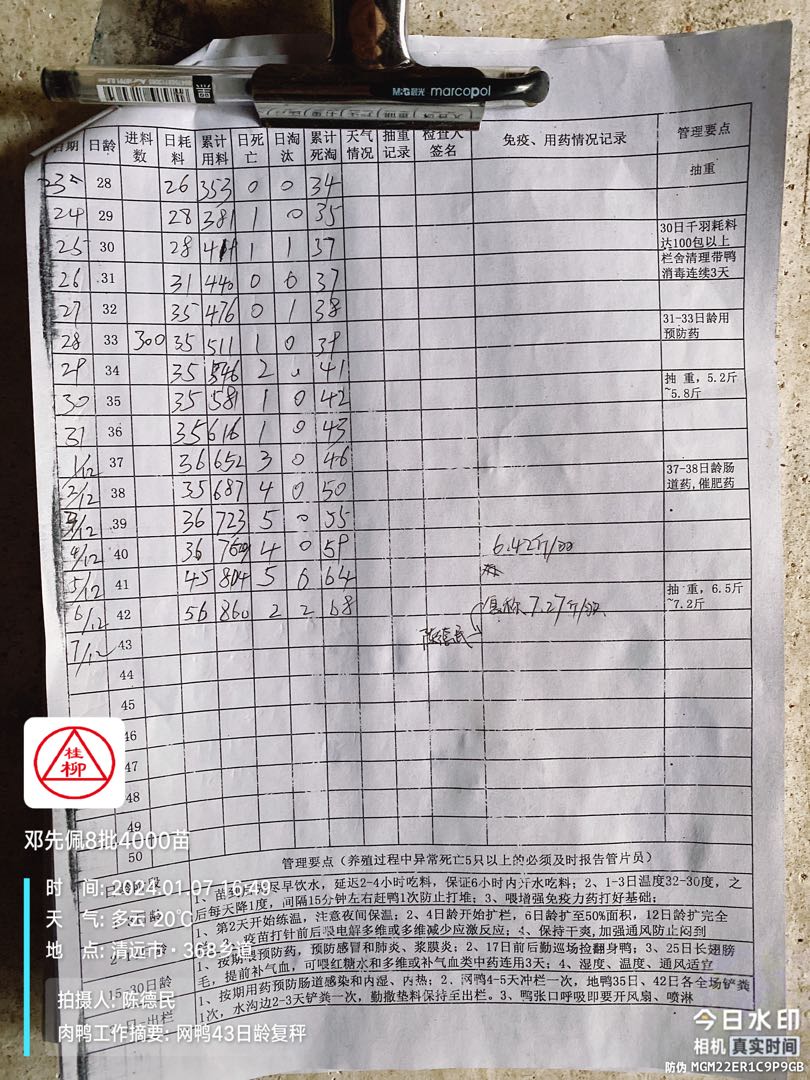 M&G晨光 marcopol
日期 日龄 进料数 日耗料 累计用料 日死亡 日淘汰 累计死淘 天气情况 抽重记录 检查人签名 免疫、用药情况记录 管理要点
28 26 353 0 0 34 抽重
24 29 28 381 1 0 35
25 30 28 1 1 37 30日千羽耗料达100包以上
26 31 31 440 0 0 37 栏舍清理带鸭消毒连续3天
27 32 35 476 0 1 38
28 33 300 35 511 1 0 39 31-33日龄用预防药
29 34 35 546 2 0 41
30 35 35 581 1 0 42 抽 重, 5.2斤~5.8斤
31 36 35 616 1 0 43
1/12 37 36 652 3 0 46
2/12 38 35 687 4 0 50 37-38日龄肠道药,催肥药
3/12 39 36 723 5 0 55
4/12 40 36 4 0 59 6.42斤/
5/12 41 45 804 5 0 64
6/12 42 56 860 2 2 68 复称7.27斤/ 抽 重, 6.5斤~7.2斤
7/12 43 陈德民
44
45
46
47
48
49
50
管理要点(养殖过程中异常死亡5只以上的必须及时报告管片员)
尽早饮水,延迟2-4小时吃料,保证6小时内开水吃料;2、1-3日温度32-30度,之
后每天降1度,间隔15分钟左右赶鸭1次防止打堆;3、喂增强免疫力药打好基础;
1、第2天开始练温,注意夜间保温;2、4日龄开始扩栏,6日龄扩至50%面积,12日龄扩完全
疫苗打针前后喂电解多维或多维减少应激反应;4、保持干爽,加强通风防止闷到
1、按期喂预防药,预防感冒和肺炎、浆膜炎;2、17日前后勤巡场捡翻身鸭;3、25日长翅膀
毛,提前补气血,可喂红糖水和多维或补气血类中药连用3天;4、湿度、温度、通风适宜
15-30日龄
1、按期用药预防肠道感染和内湿、内热;2、网鸭4-5天冲栏一次,地鸭35日、42日各全场铲粪
1次,水沟边2-3天铲粪一次,勤撒垫料保持至出栏。3、鸭张口呼吸即要开风扇、喷淋
出栏
桂柳
邓先佩8批4000苗
时 间: 2024.01.07 16:49
天 气: 多云 20℃
地 点: 清远市·368乡道
拍摄人: 陈德民
肉鸭工作摘要: 网鸭43日龄复秤
今日水印
相机 真实时间
防伪 MGM22ER1C9P9GB